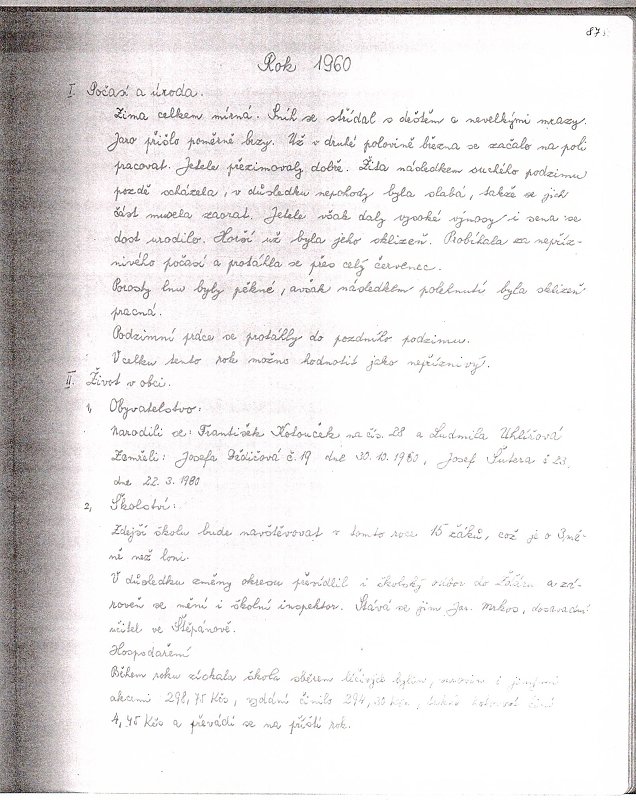 87.
Rok 1960
I. Počasí a úroda.
Zima celkem mírná. Sníh se střídal s deštěm a nevelkými mrazy.
Jaro přišlo poměrně brzy. Už v druhé polovině března se začalo na poli
pracovat. Jetele přezimovaly dobře. Žita následkem suchého podzimu
pozdě scházela, v důsledku nepohody byla slabá, takže se jich
část musela zaorat. Jetele však daly vysoké výnosy i sena se
dost urodilo. Horší už byla jeho sklizeň. Probíhala za nepříz-
nivého počasí a protáhla se přes celý červenec.
Porosty lnu byly pěkné, avšak následkem polehnutí byla sklizeň
pracná.
Podzimní práce se protáhly do pozdního podzimu.
V celku tento rok možno hodnotit jako nepříznivý.
II. Život v obci.
1, Obyvatelstvo:
Narodili se: František Kotouček na čís. 28 a Ludmila Uhlířová
Zemřeli: Josefa Dědičová č. 19 dne 30. 10. 1960, Josef Šutera č 23.
dne 22. 3. 1960
2, Školství:
Zdejší školu bude navštěvovat v tomto roce 15 žáků, což je o 3 mé-
ně než loni.
V důsledku změny okresu přesídlil i školský odbor do Žďáru a zá-
roveň se mění i školní inspektor. Stává se jím Jar. Mrkos, dosavadní
učitel ve Štěpánově.
Hospodaření
Během roku získala škola sběrem léčivých bylin, a jinými
akcemi 298,75 Kčs, vydání činilo 294,30 Kčs, takže činí
4,45 Kčs a převádí se na příští rok.